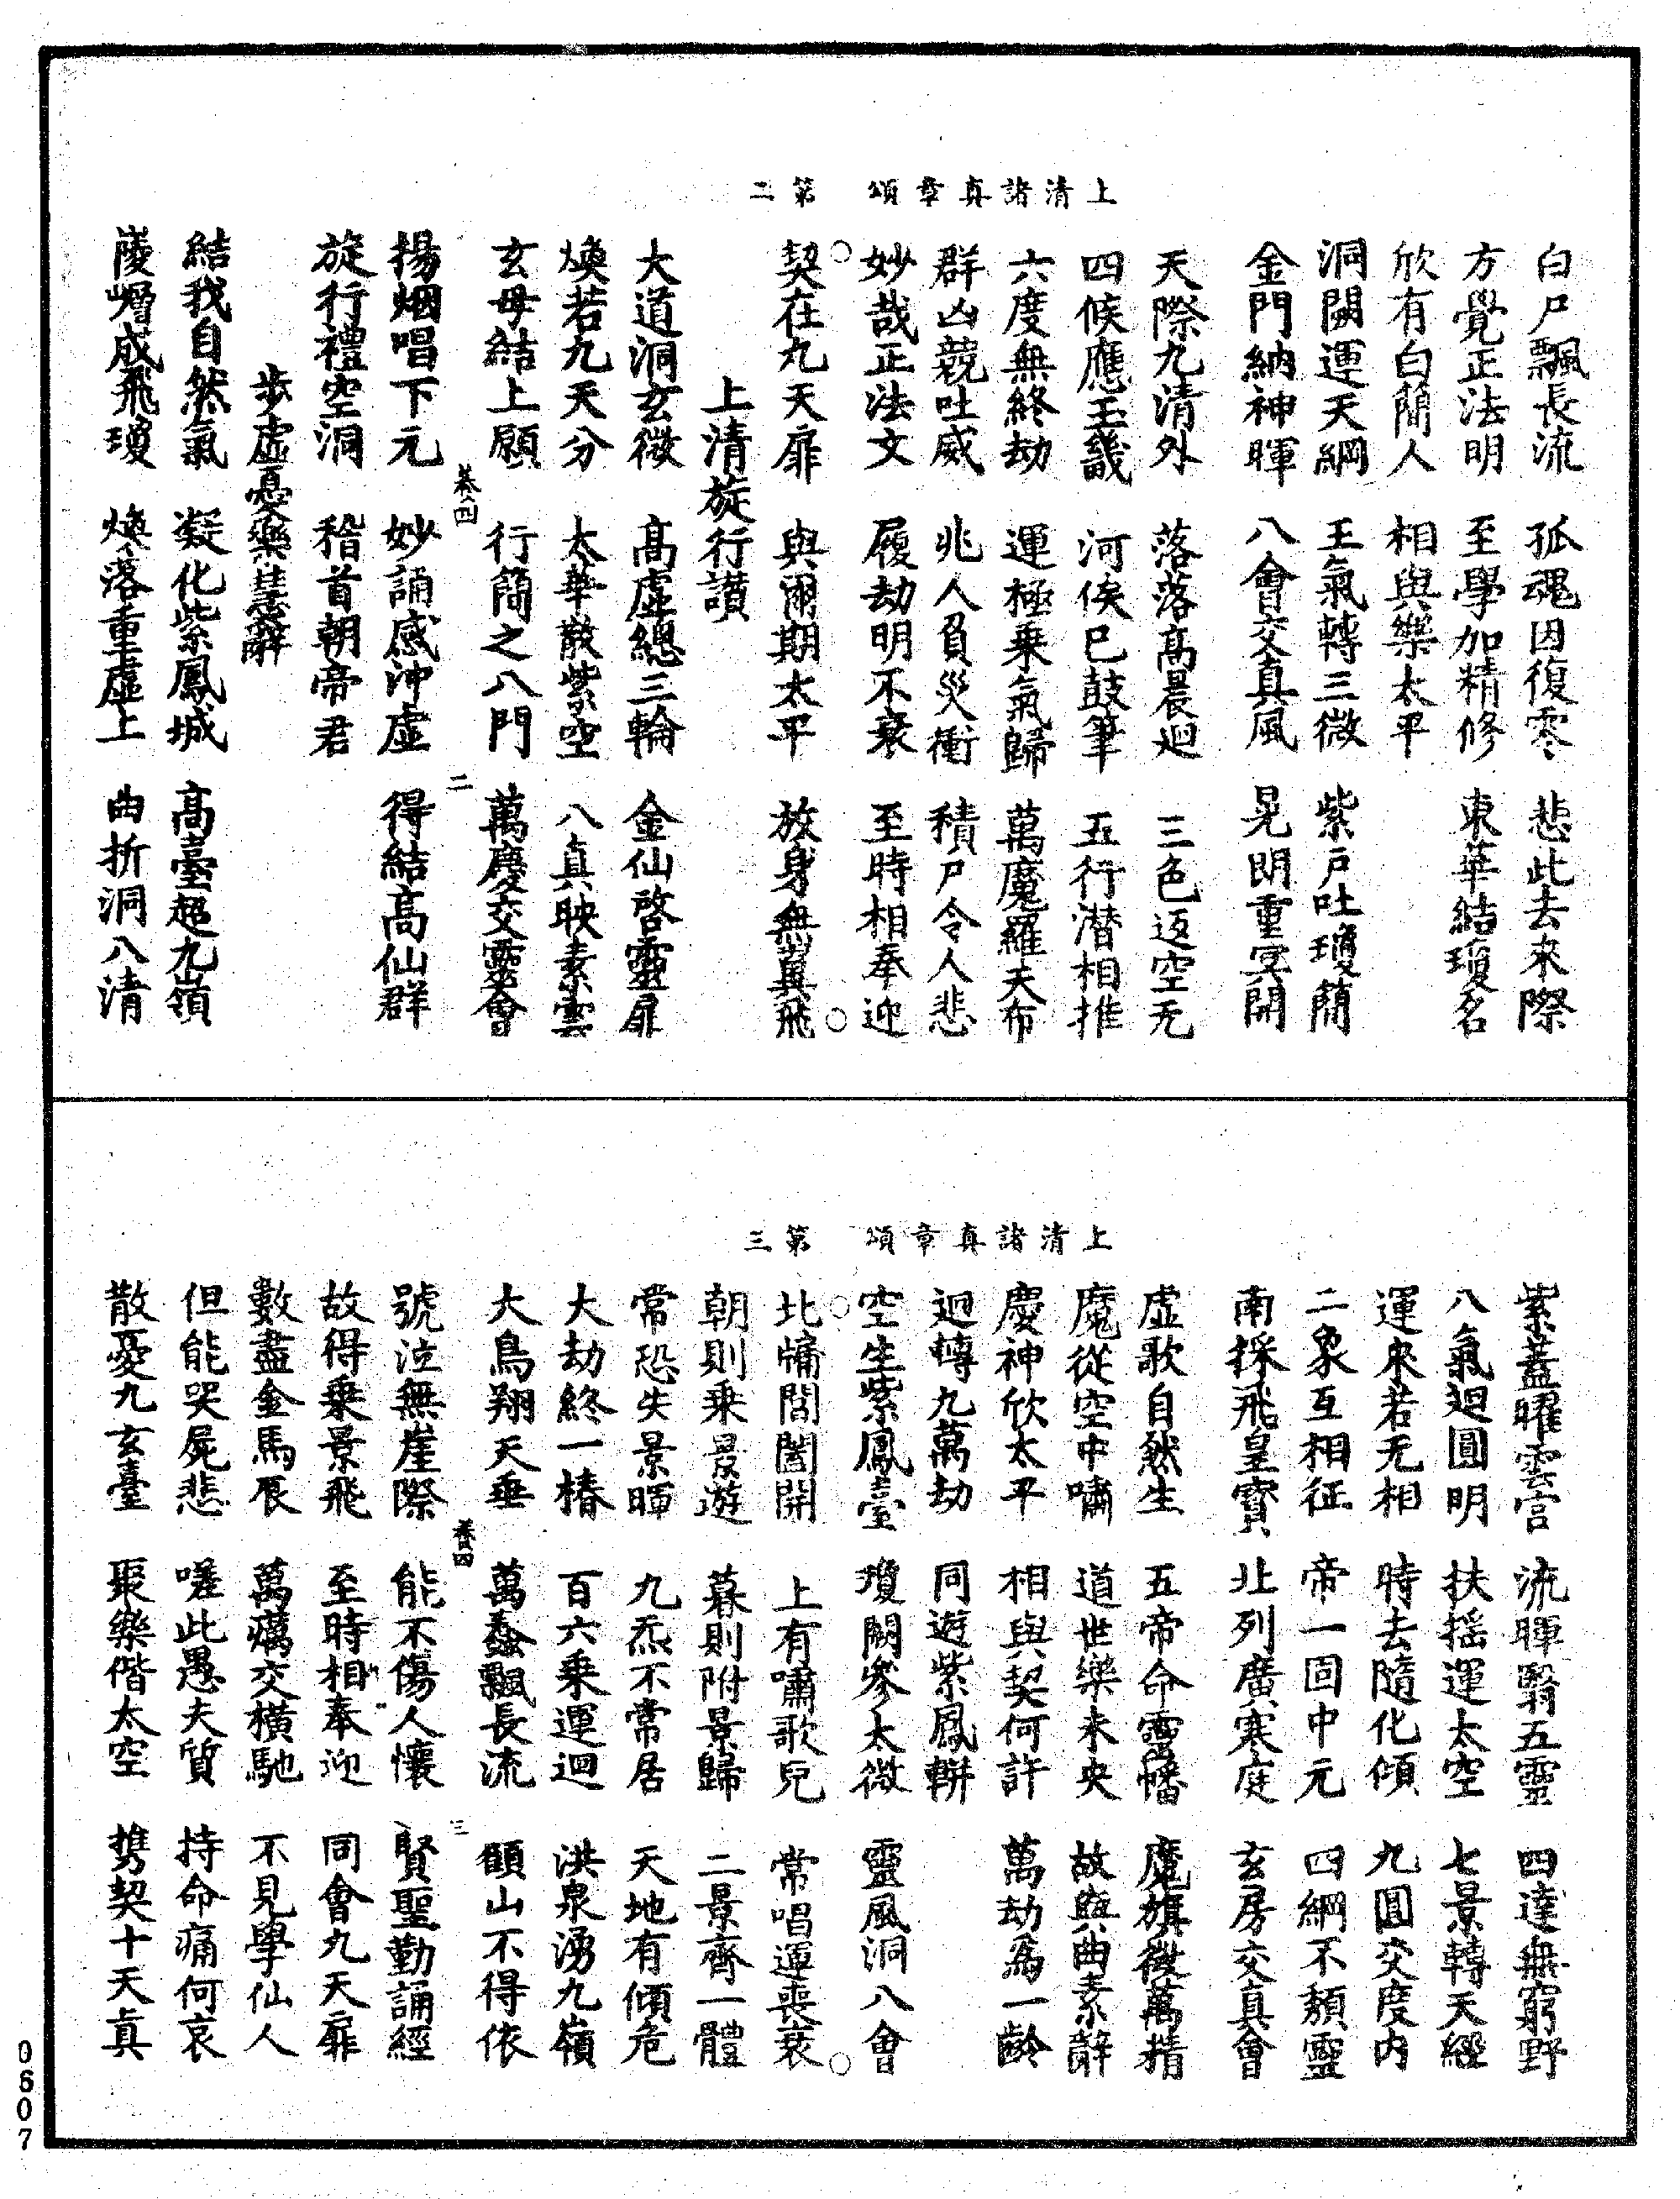 上清諸真章頌　第二
白尸飄長流　孤魂因復零　悲此去來際
方覺正法明　至學加精修　東華結瓊名
欣有白簡人　相與樂太平
洞闕運天綱　王氣轉三微　紫戸吐瓊簡
金門納神暉　八會交真風　晃朗重冥開
天際九清外　落落高晨迴　三色返空无
四候應玉璣　河侯已鼓筆　五行潛相推
六度無終劫　運極乗氣歸　萬魔羅天布
群凶競吐威　兆人負災衝　積尸令人悲
妙哉正法文　履劫明不衰　至時相奉迎
契在九天扉　與爾期太平　放身無䔬飛
上清旋行讃
大道洞玄微　高虛總三輪　金仙啓靈扉
煥若九天分　太華散紫空　八真映素雲
玄母結上願　行簡之八門　萬慶交靈會
卷四　二
揚烟唱下元　妙誦感沖虛　得結高仙群
旋行禮空洞　稽首朝帝君
步虛憂樂慧辭
結我自然氣　凝化紫鳳城　高臺超九嶺
崚嶒成飛瓊　煥落重虛上　曲折洞八清
上清諸真章頌　第三
紫蓋曜雲宫　流暉翳五靈　四達無窮野
八氣迴圓明　扶摇運太空　七景轉天經
運來若无相　時去隨化傾　九圓交度内
二象互相征　帝一固中元　四綱不頽靈
南採飛皇寳　北列廣寒庭　玄房交真會
虛歌自然生　五帝命靈幡　魔旗徵萬精
魔從空中嘯　道世樂未央　故與曲素辭
慶神欣太平　相與契何許　萬劫為一齡
迴轉九萬劫　同遊紫鳳輧
空生紫鳳臺　瓊闕參太微　靈風洞八會
北牗閶闔開　上有嘯歌兒　常唱運喪衰
朝則乗景遊　暮則附景歸　二景齊一體
常恐失景暉　九炁不常居　天地有傾危
大劫終一椿　百六乗運迴　洪泉湧九嶺
大鳥翔天垂　萬蠢飄長流　顧山不得依
卷四　三
號泣無崖際　能不傷人懷　賢聖勤誦經
故得乗景飛　至時相奉迎　同會九天扉
數盡金馬辰　萬癘交横馳　不見學仙人
但能哭屍悲　嗟此愚夫質　持命痛何哀
散憂九玄臺　聚樂偕太空　携契十天真
0607